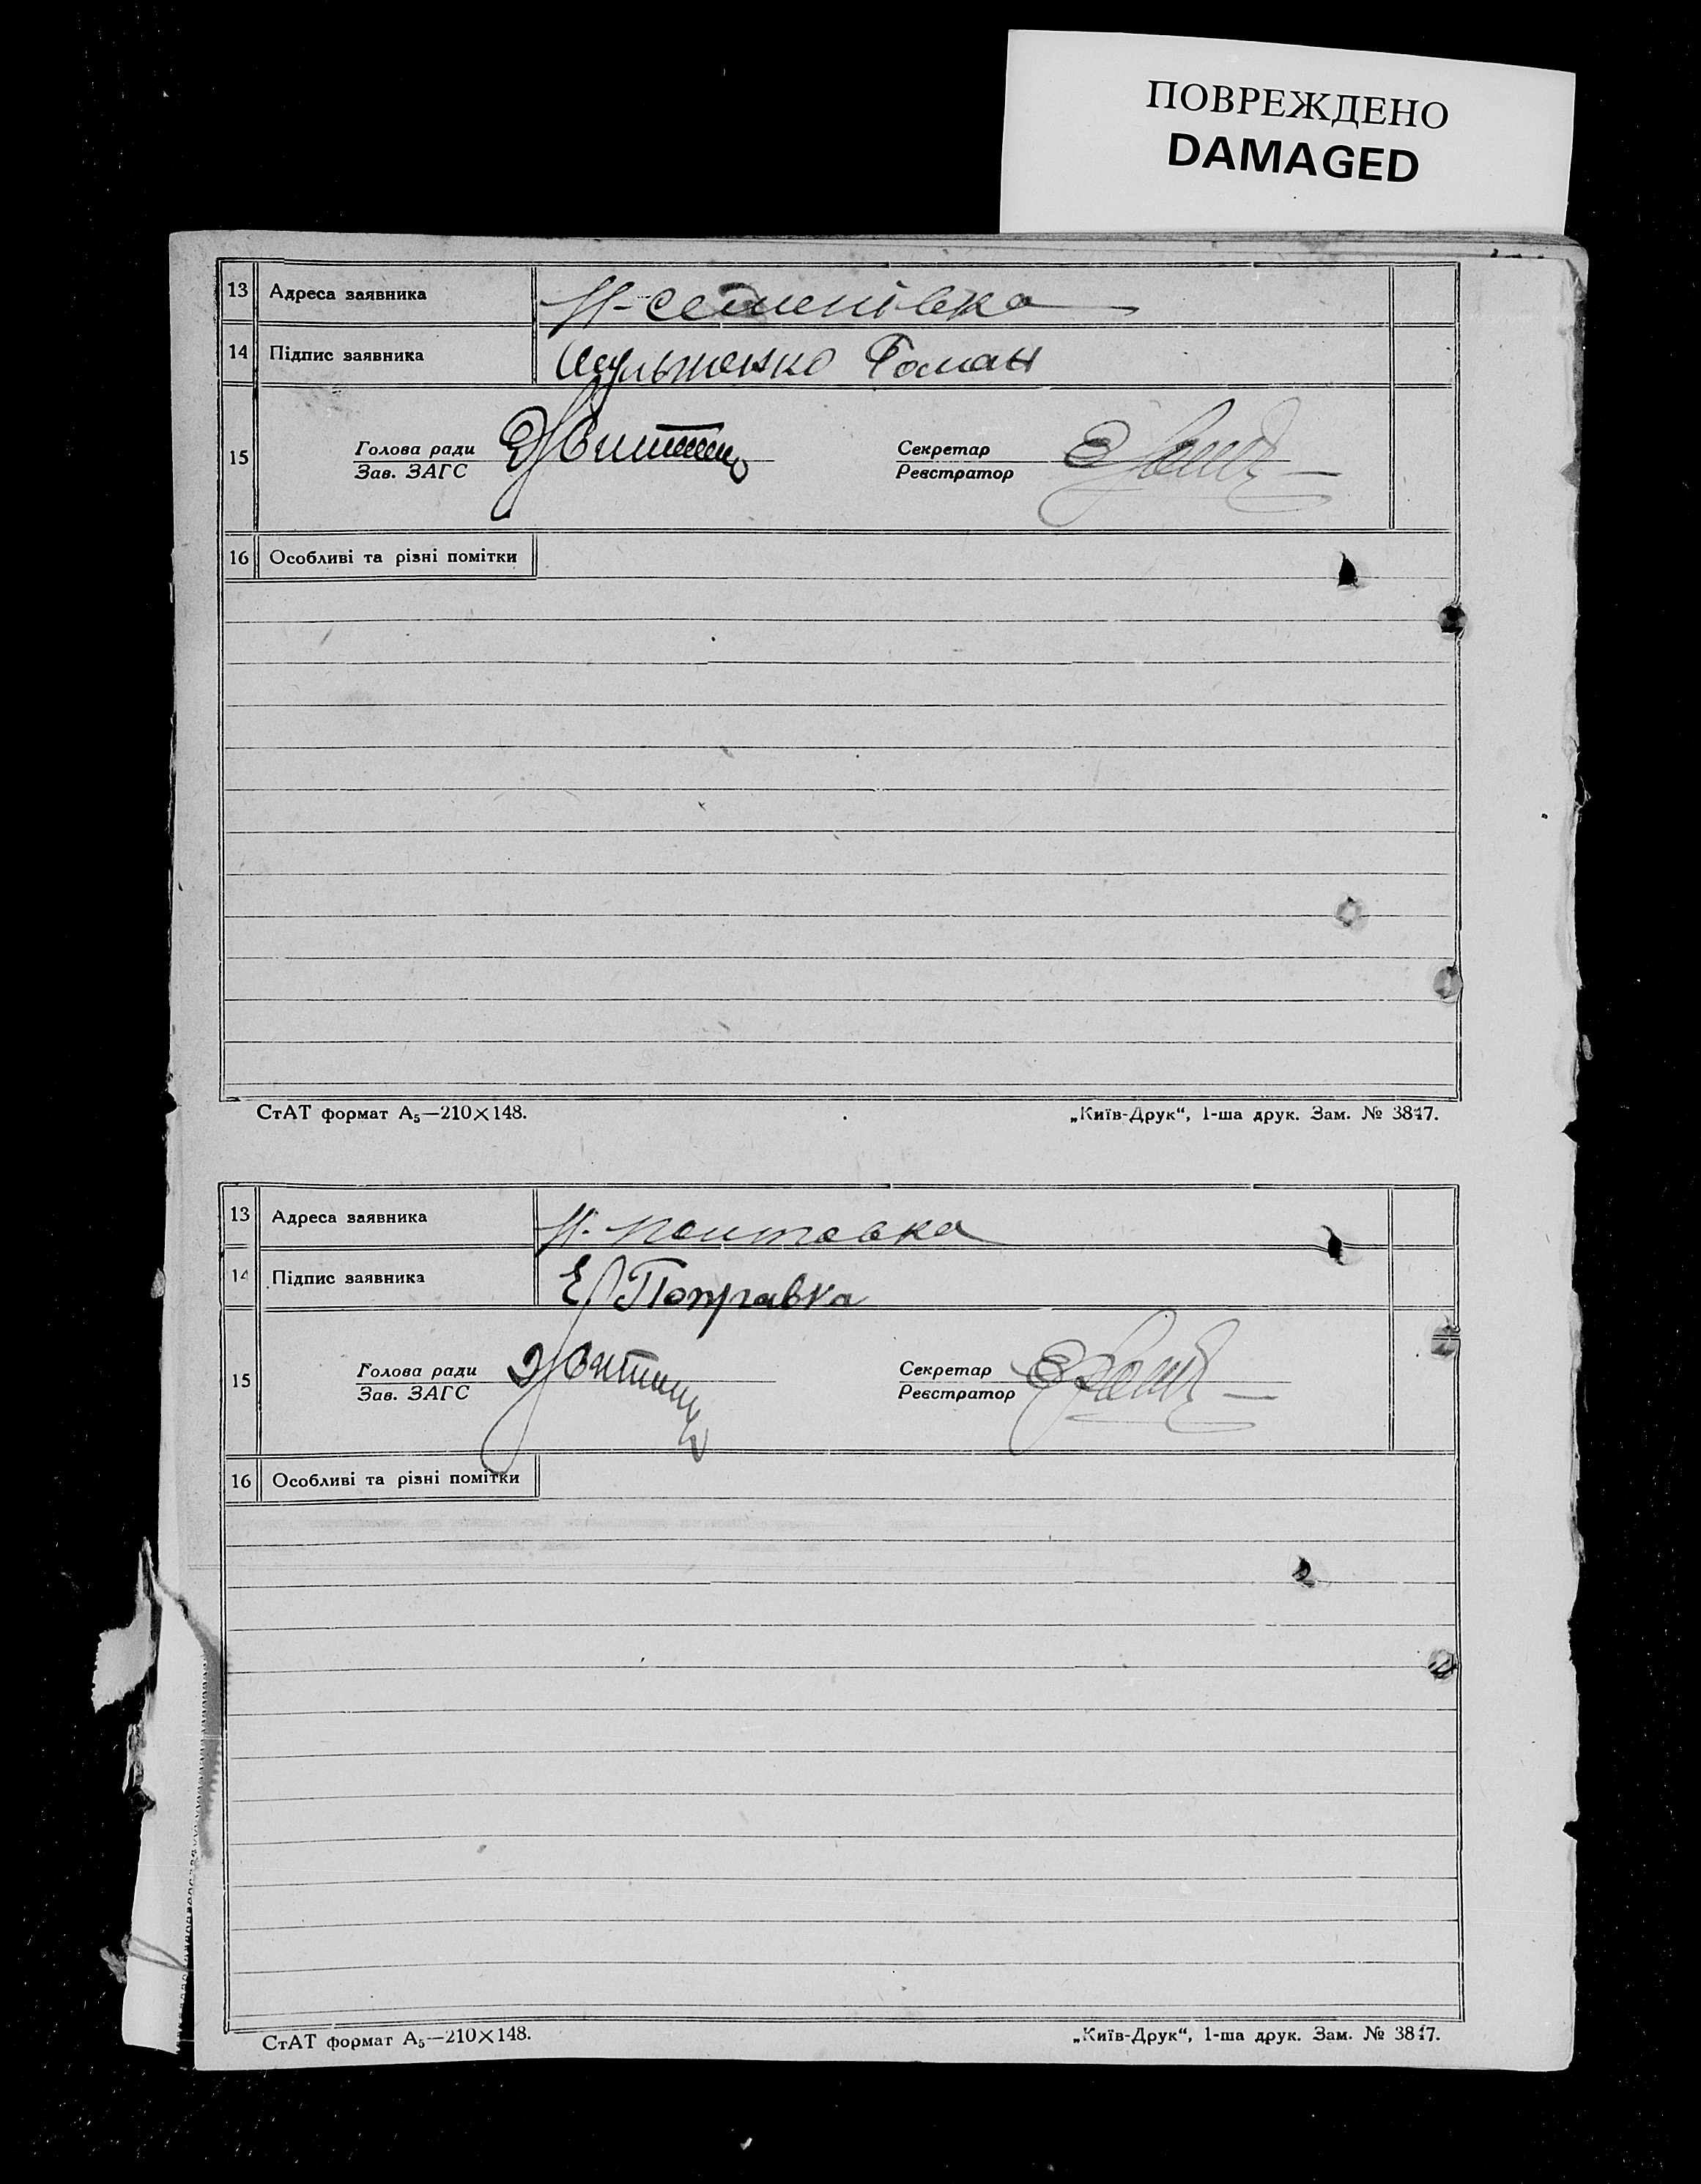 ПОВРЕЖДЕНО
DAMAGED
13 Адреса заявника Н-семенівка
14 Підпис заявника Роман
15 Голова ради Секретар
Зав. ЗАГС Реєстратор
16 Особливі та різні помітки
СтАТ формат А5—210×148. „Київ-Друк“, 1-ша друк. Зам. № 3847.
13 Адреса заявника Н.
14 Підпис заявника Е Поправка
15 Голова ради Секретар
Зав. ЗАГС Реєстратор
16 Особливі та різні помітки
СтАТ формат А5—210×148. „Київ-Друк“, 1-ша друк. Зам. № 3847.